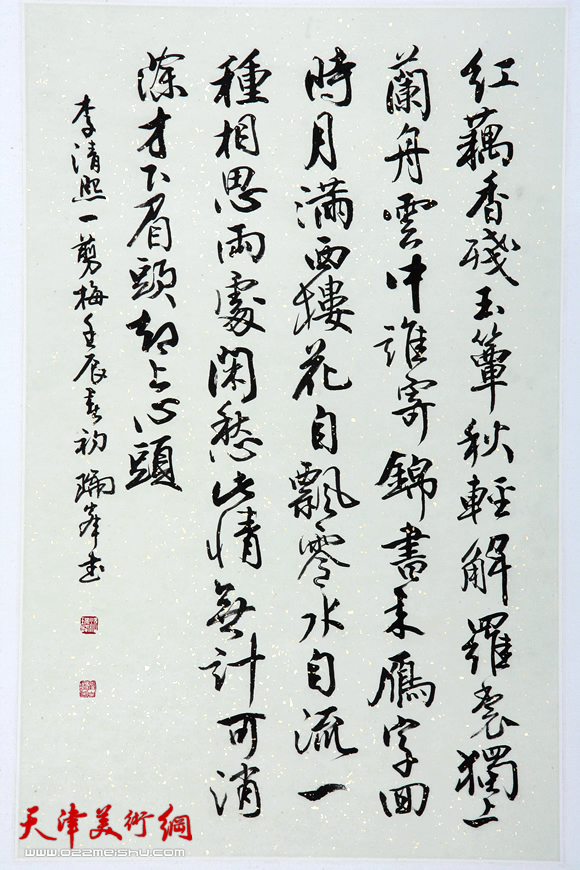 紅藕香殘玉簟秋輕解羅裳獨上
蘭舟雲中誰寄錦書來鴈字回
時月滿西樓花自飄零水自流一
種相思兩處閑愁此情無計可消
除才下眉頭却上心頭
李清照一剪梅壬辰春初瑞峯書
天津美術網